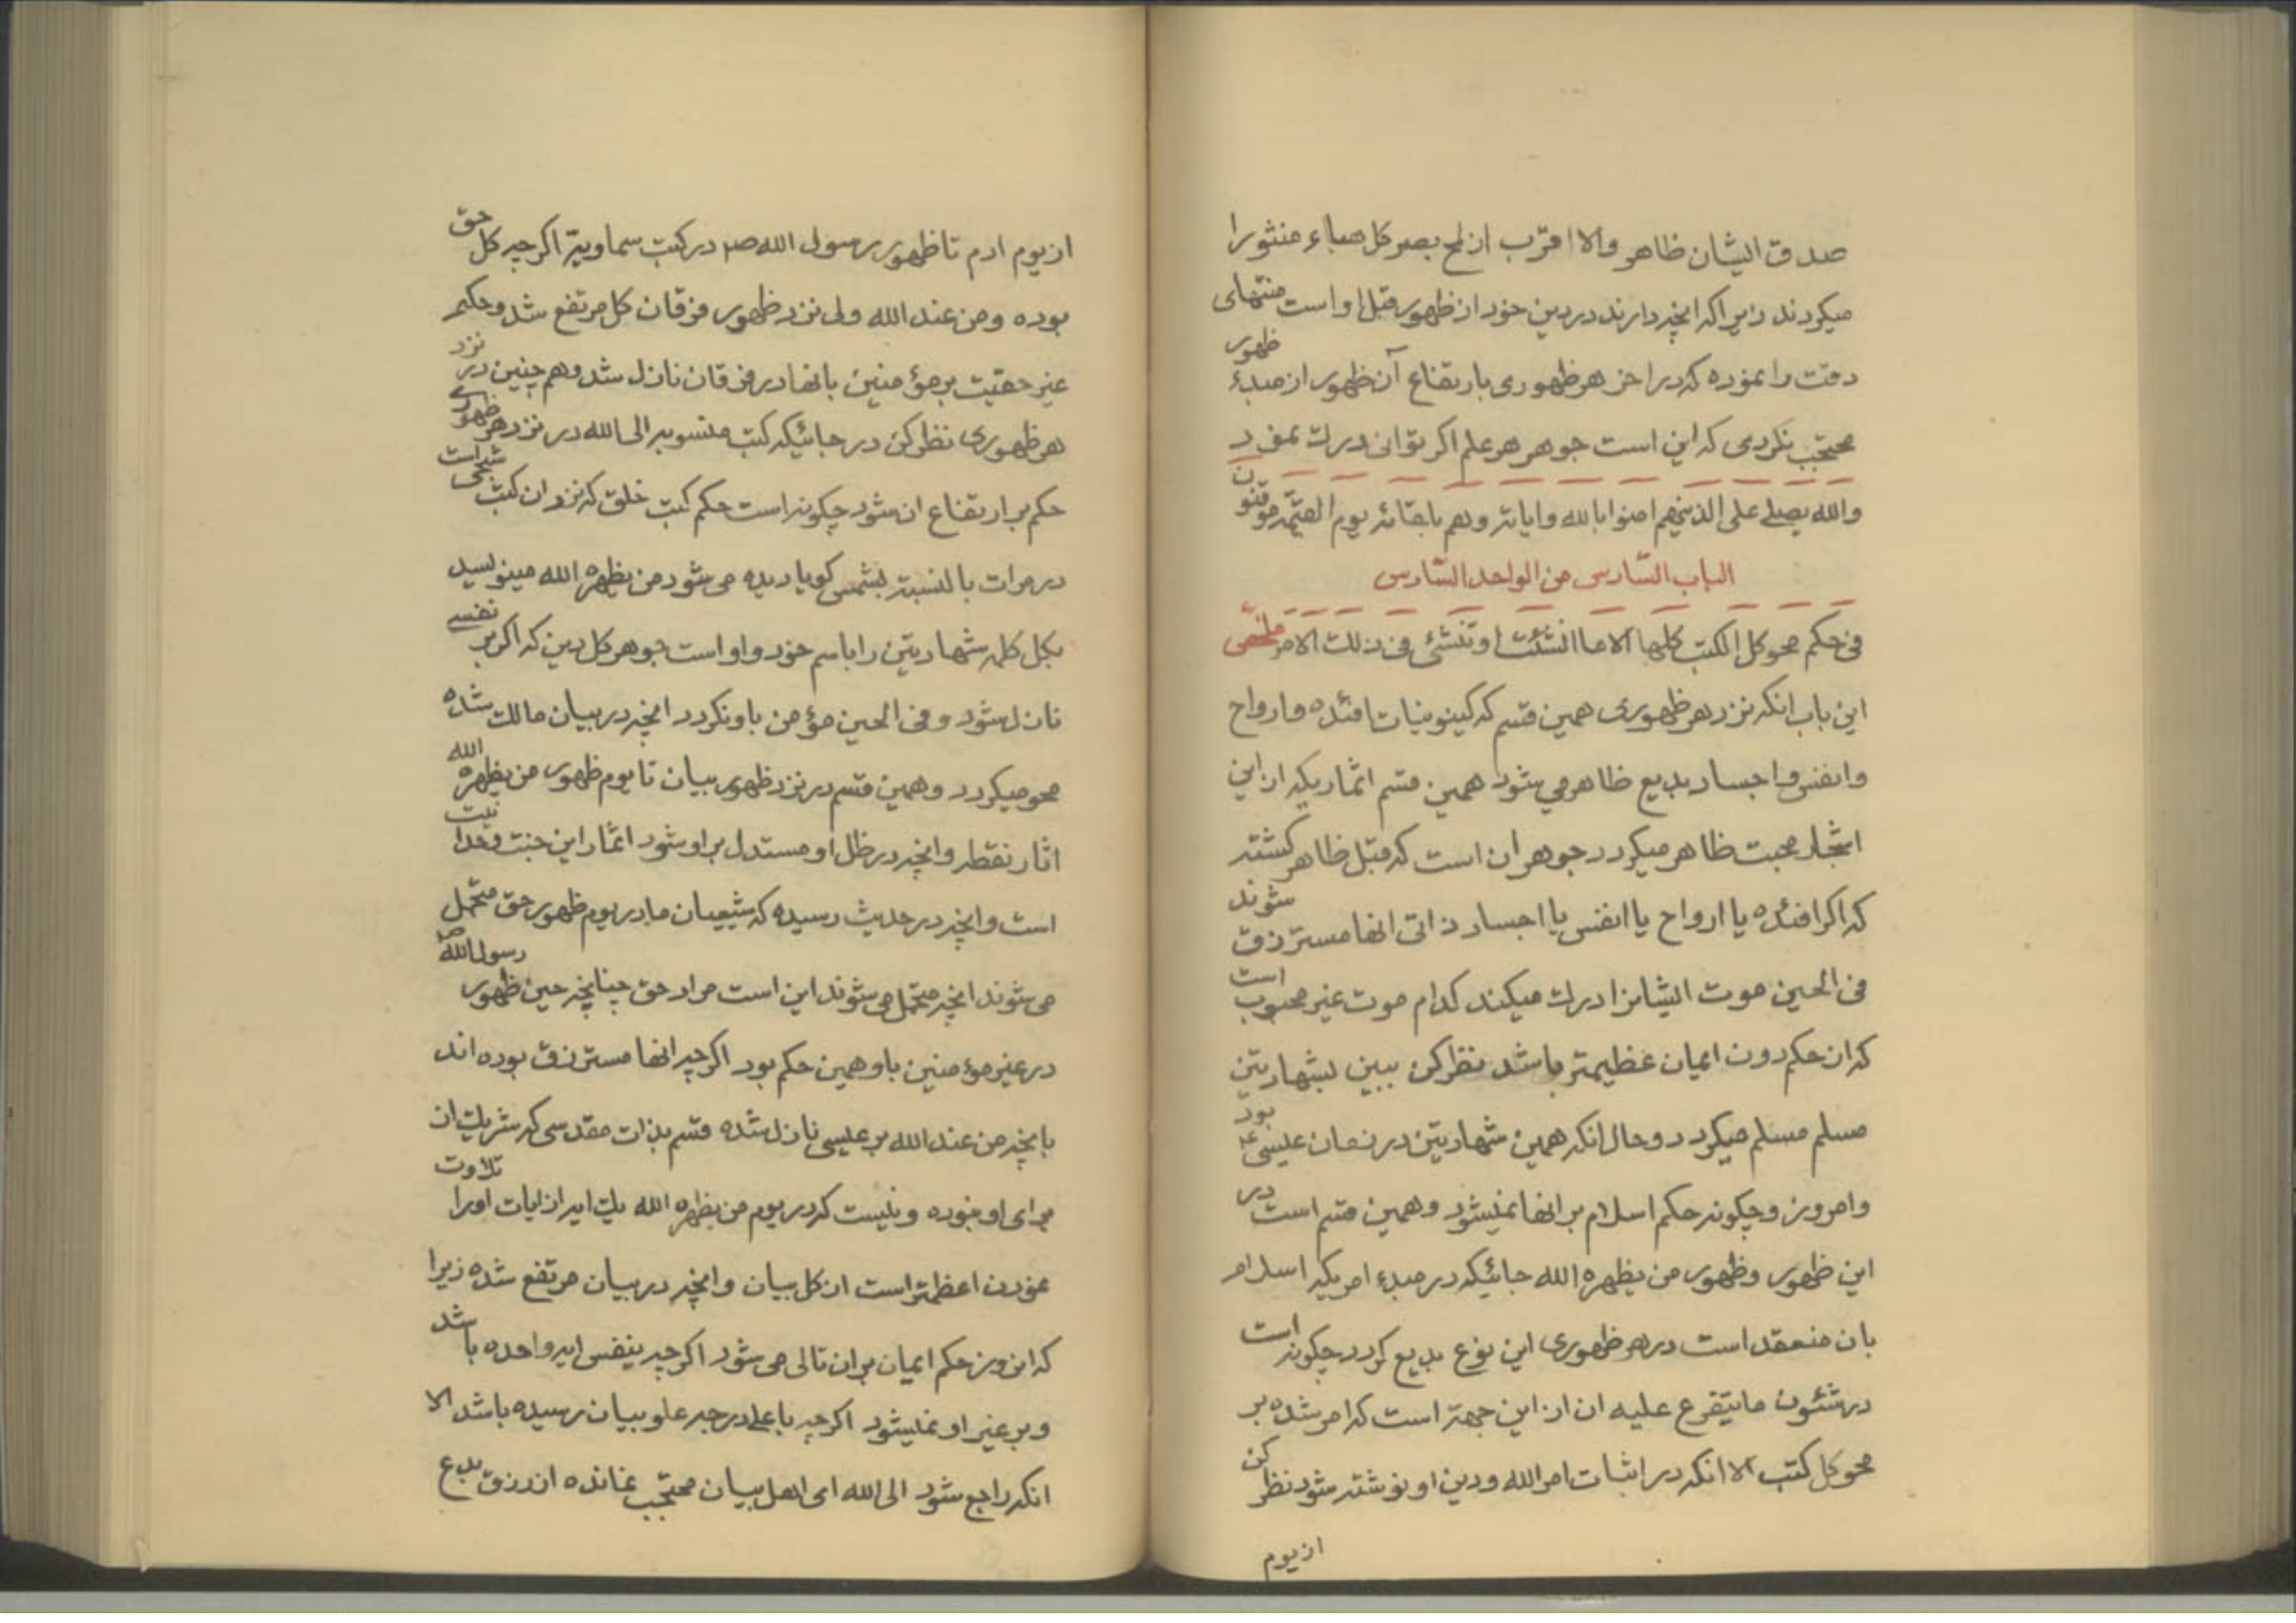 صدق ایشان ظاهر والا اقرب از لمح بصر کل هباء منثورا
میکردند زیرا که انچه دارند در دین خود از ظهور قبل او است منتهای
دقت را نموده که در اخر هر ظهوری بارتفاع آن ظهور از مبدء ظهور
محتجب نکردی که این است جوهر هر علم اکر توانی درک نمود
والله یصلی علی الذینهم امنوا بالله وایاته وهم بلقائه یوم القیمة موقنون
الباب السّادس من الواحد السّادس
فی حکم محو کل الکتب کلها الا ما انشئت او تنشئ فی ذلک الامر ملخص
این باب انکه نزد هر ظهوری همین قسم که کینونیات افئده وارواح
وانفس واجساد بدیع ظاهر می شود همین قسم اثماریکه از این
اشجار محبت ظاهر میکردد جوهر ان است که قبل ظاهر کشته
که اکر افئده یا ارواح یا انفس یا اجساد ذاتی انها مسترزق شوند
فی الحین موت ایشانرا درک میکند کدام موت غیر محبوب است
که ان حکم دون ایمان عظیمتر باشد نظر کن ببین بشهادتین
مسلم مسلم میکردد وحال انکه همین شهادتین در زمان عیسی ع بود
وامروز وچکونه حکم اسلام بر انها نمیشود وهمین قسم است در
این ظهور وظهور من یظهره الله جائیکه در مبدء امریکه اسلام
بان منعقد است در هر ظهوری این نوع بدیع کردد چکونه است
در شئون ما یتفرع علیه ان از این جهة است که امر شده بر
محو کل کتب الا انکه در اثبات امر الله ودین او نوشته شود نظر کن
از یوم
از یوم ادم تا ظهور رسول الله ص در کتب سماویة اکر چه کل حق
بوده ومن عند الله ولی نزد ظهور فرقان کل مرتفع شد وحکم
غیر حقیت بر مؤمنین بانها در فرقان نازل شد وهم چنین در نزد
هر ظهوری نظر کن در جائیکه کتب منسوبه الی الله در نزد هر ظهوری
حکم بر ارتفاع ان شود چکونه است حکم کتب خلق که نزد ان کتب شبحی است
در مرات بالنسبة بشمس کویا دیده می شود من یظهره الله مینویسد
بکل کلمه شهادتین را باسم خود واو است جوهر کل دین که اکر بر نفسی
نازل شود وفی الحین مؤمن باو نکردد انچه در بیان مالک شده
محو میکردد وهمین قسم در نزد ظهور بیان تا یوم ظهور من یظهره الله
اثار نقطه وانچه در ظل او مستدل بر او شود اثمار این جنت وحدانیت
است وانچه در حدیث رسیده که شیعیان ما در یوم ظهور حق متحمل
می شوند انچه متحمل می شوند این است مراد حق چنانچه حین ظهور رسول الله ص
در غیر مؤمنین باو همین حکم بود اکر چه انها مسترزق بوده اند
بانچه من عند الله بر عیسی نازل شده قسم بذات مقدسی که شریک از
برای او نبوده ونیست که در یوم من یظهره الله یک ایه از ایات اورا تلاوت
نمودن اعظمتر است از کل بیان وانچه در بیان مرتفع شده زیرا
که ان روز حکم ایمان بر ان تالی می شود اکر چه بنفس ایه واحده باشد
وبر غیر او نمیشود اکر چه باعلی درجه علو بیان رسیده باشد الا
انکه راجع شود الی الله ای اهل بیان محتجب نمانده از رزق بدع